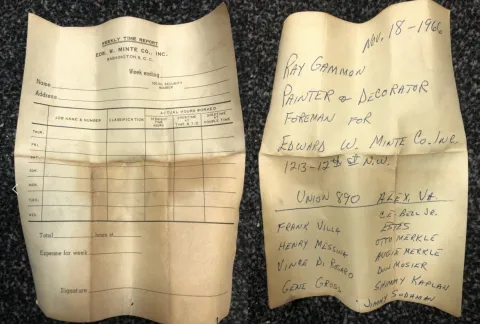 WEEKLY TIME REPORT
EDW. W. MINTE CO., INC.
WASHINGTON 5, D. C.
Week ending
Name
SOCIAL SECURITY
NUMBER
Address
ACTUAL HOURS WORKED
JOB NAME & NUMBER
CLASSIFICATION
THUR.
FRI.
SAT.
SUN.
MON.
TUE.
WED.
Total hours at
Expense for week
Signature
NOV. 18-1966
RAY GAMMON
PAINTER & DECORATOR
FOREMAN FOR
EDWARD W. MINTE CO. INC.
1213-12th ST N.W.
UNION 890 ALEX, VA.
FRANK VILLA
HENRY MESSINA
VINCE DI
GENE GROSS
C.E. BELL JR.
ESTES
OTTO MERKLE
AUGIE MERKLE
DON MOSIER
SAMMY KAPLAN
JIMMY